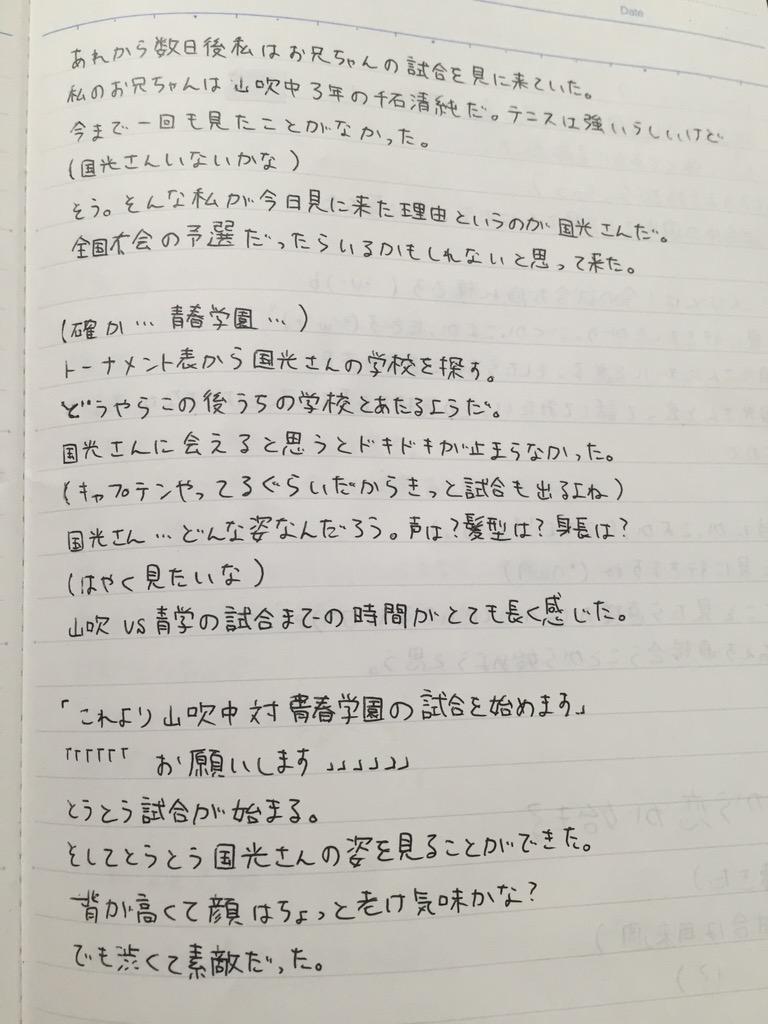 Date
あれから数日後私はお兄ちゃんの試合を見に来ていた。
私のお兄ちゃんは山吹中3年の千石清純だ。テニスは強いらしいけど
今まで一回も見たことがなかった。
(国光さんいないかな)
そう。そんな私が今日見に来た理由というのが国光さんだ。
全国大会の予選だったらいるかもしれないと思って来た。
(確か…青春学園…)
トーナメント表から国光さんの学校を探す。
どうやらこの後うちの学校とあたるようだ。
国光さんに会えると思うとドキドキが止まらなかった。
(キャプテンやってるぐらいだからきっと試合も出るよね)
国光さん…どんな姿なんだろう。声は?髪型は?身長は?
(はやく見たいな)
山吹vs青学の試合までの時間がとても長く感じた。
「これより山吹中対青春学園の試合を始めます」
「「「「「「お願いします」」」」」」
とうとう試合が始まる。
そしてとうとう国光さんの姿を見ることができた。
背が高くて顔はちょっと老け気味かな?
でも渋くて素敵だった。